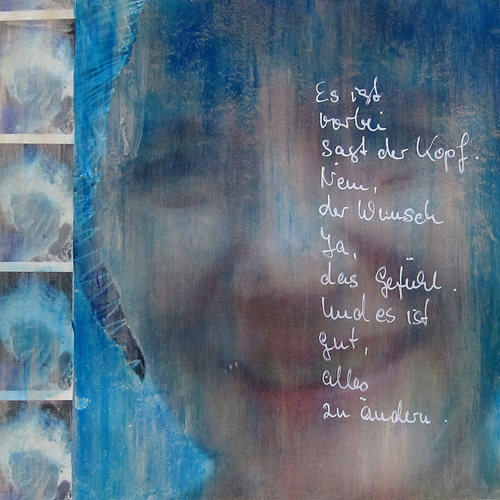 Es ist
vorbei
sagt der Kopf.
Nein,
der Wunsch
Ja,
das Gefühl.
Und es ist
gut,
alles
zu ändern.